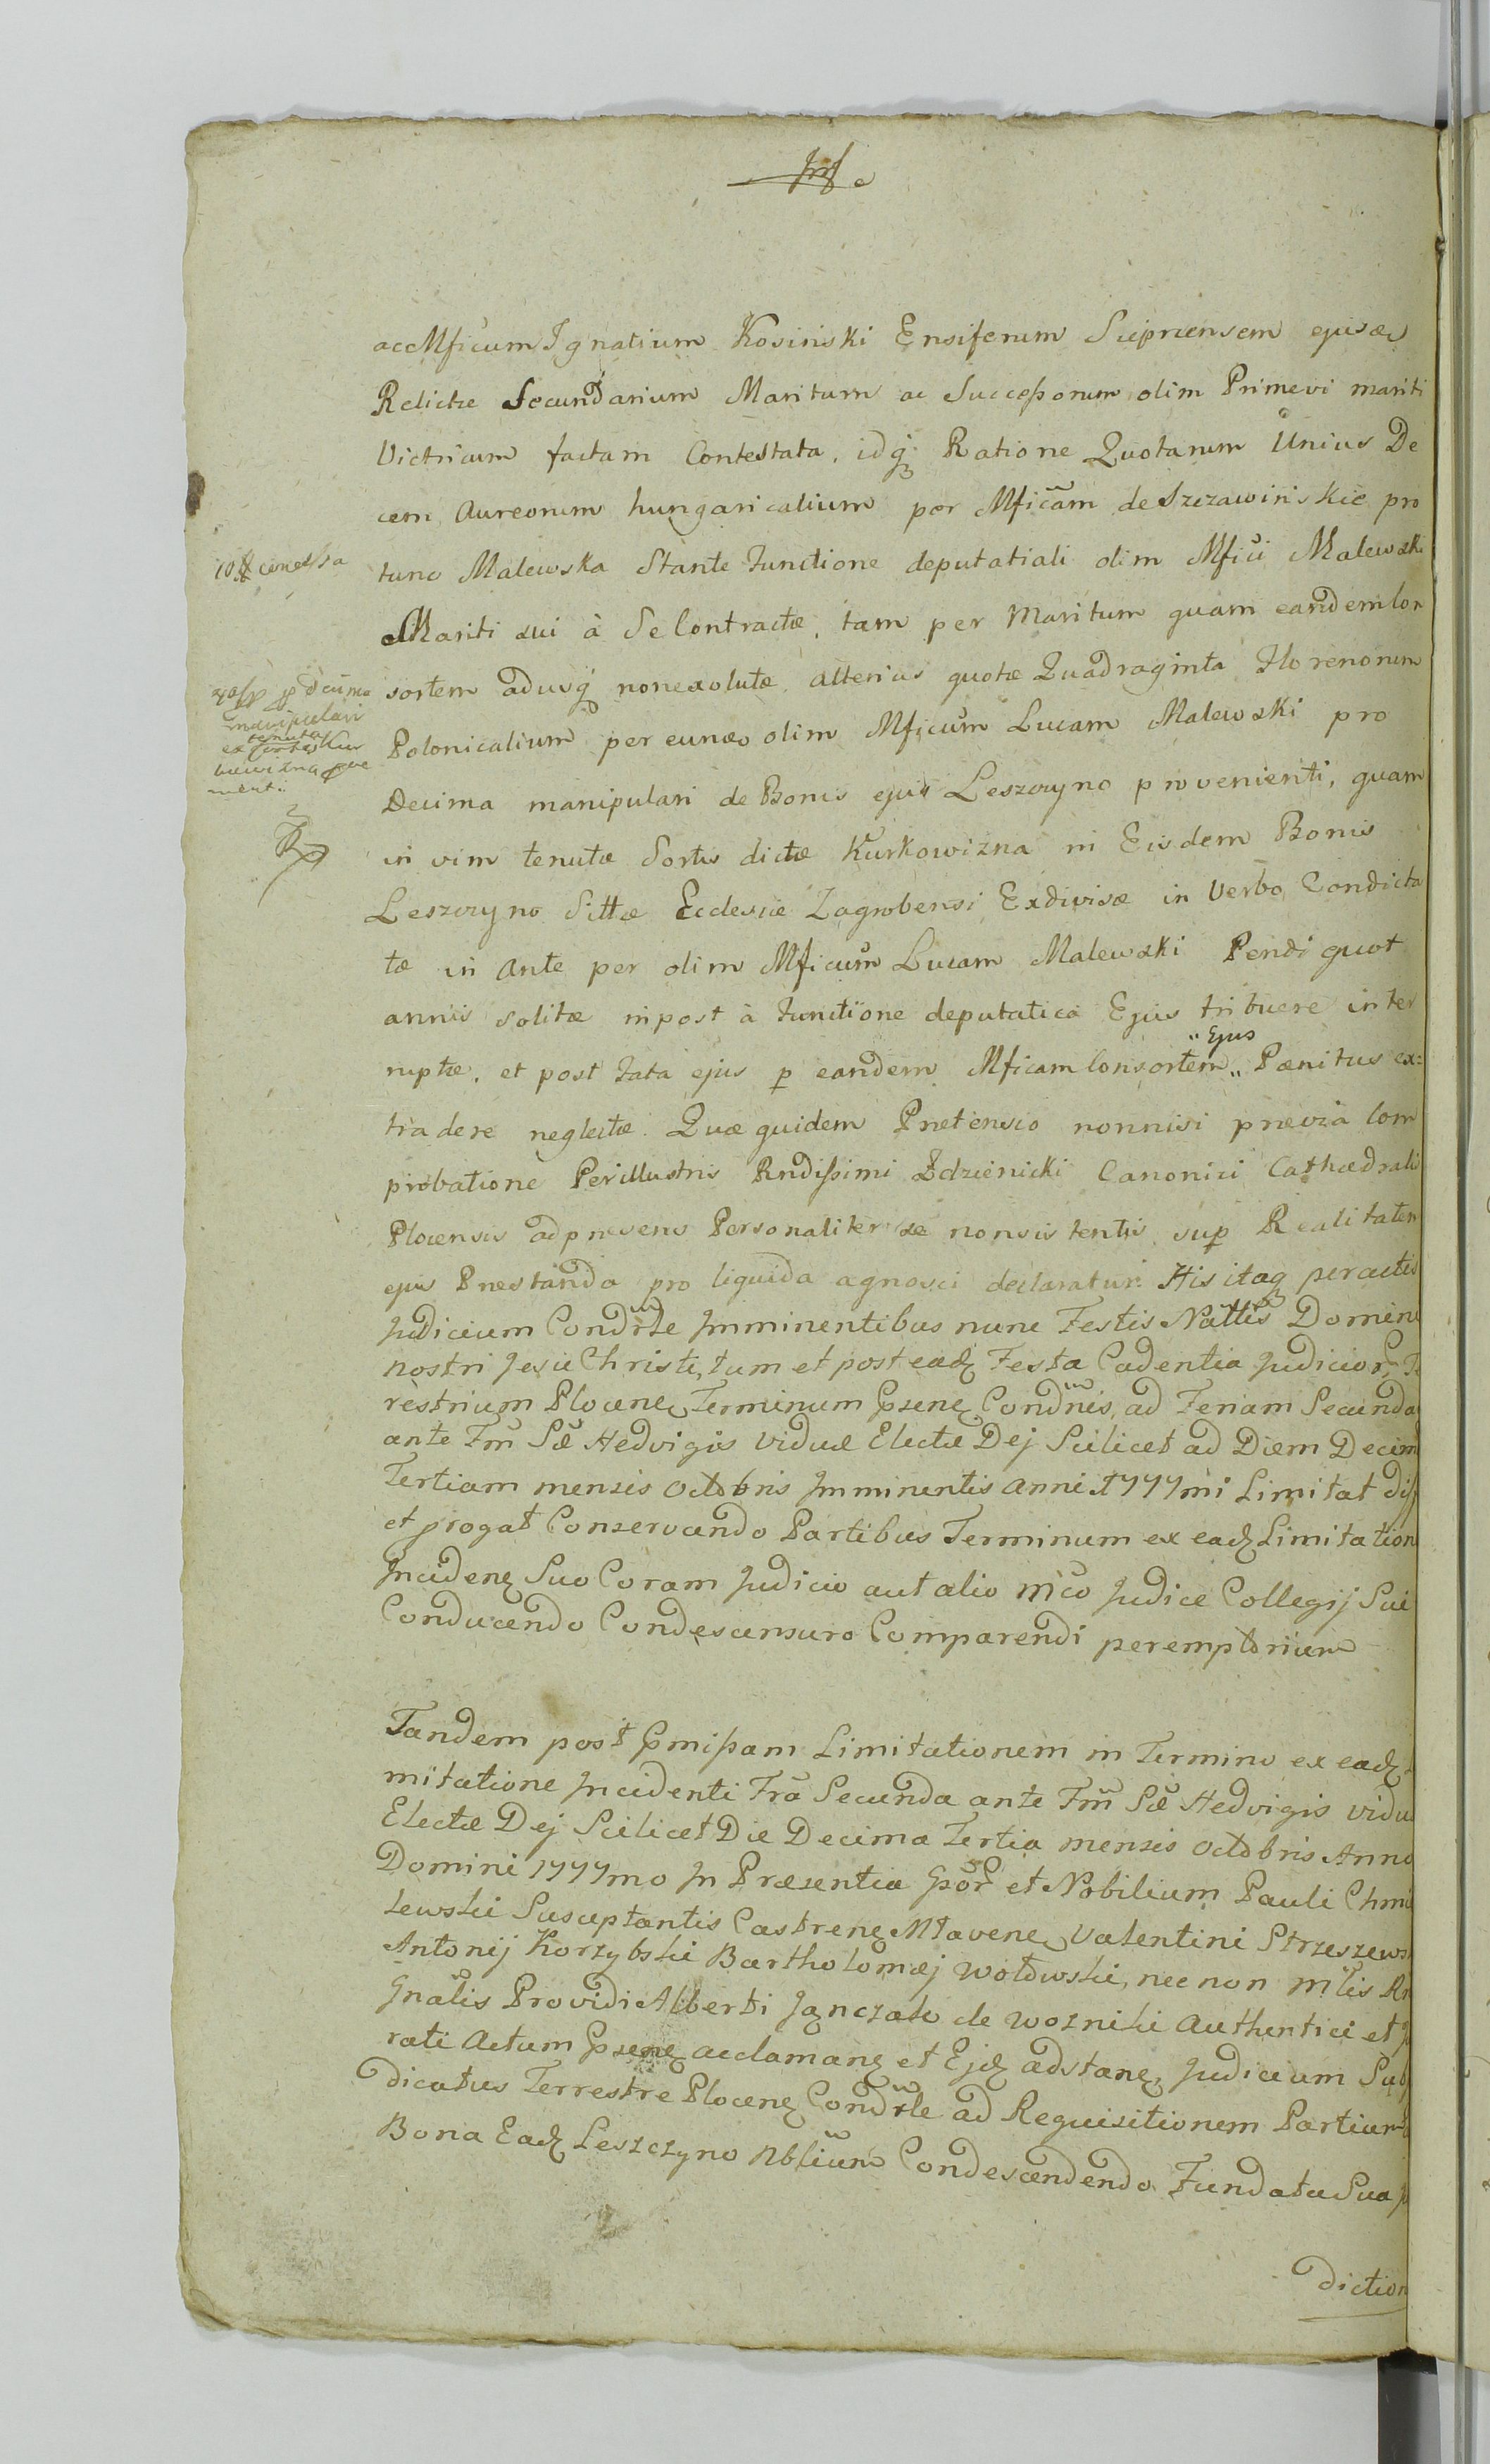 ac Mficum Ignatium Kosiński Ensiferum Sieprcensem ejusdq
Relictæ Secundarium Maritum ac Successorum olim Primevi mariti
Victricum factam Contestata, idq; Ratione Quotarum Unius De
cem Aureorum hungaricalium per Mficam de Szczawińskie pro
tunc Malewska Stante functione deputatiali olim Mfici Malewski
Mariti sui à Se Contractæ, tam per Maritum quam eandem Con
sortem adusq; nonexolutæ, alterius quotæ Quadraginta Florenorum
Polonicalium per eundq olim Mficum Lucam Malewski pro
Decima manipulari de Bonis ejus Leszczyno provenienti, quam
in vim tenutæ Sortis dictæ Kurkowizna in Eisdem Bonis
Leszczyno Sittæ Ecclesiæ Zagrobensi Exdivisæ in Verbo Condicta
tæ in ante per olim Mficum Lucam Malewski Pendi quot
annis solitæ inpost à functione deputatica Ejus tribuere inter
ruptæ, et post fata ejus p eandem Mficam Consortem „ Ejus „ Pænitus ex:
tradere neglectæ. Quæ quidem Prætensio nonnisi prævia Com
probatione Perillustris Rndissimi Zdzienicki Canonici Cathædrali
Plocensis adpræsens Personaliter se nonsistentis, sup Realitatem
ejus Præstanda pro liquida agnosci declaratur. His itaq peractis
Judicium Condrle Imminentibus nunc Festis Nattis Domini
nostri Jesu Christi, tum et post eadq Festa Cadentia Judicior Te
restrium Plocenq Terminum Psenq Condnis, ad Feriam Secunda
ante Fm Sæ Hedvigis viduæ Electæ Dej Scilicet ad Diem Decim
Tertiam mensis Octobris Imminentis Anni 1777mi Limitat dif
et progat Conservando Partibus Terminum ex eadq Limitation
Incidenq Suo Coram Judicio aut alio Mco Judice Collegij Sui
Conducendo Condescensuro Comparendi peremptorium
Tandem post Pmissam Limitationem in Termino ex eadq
mitatione Incidenti Fra Secunda ante Fm Sæ Hedvigis vidu
Electæ Dej Scilicet Die Decima Tertia mensis Octobris Anno
Domini 1777mo In Præsentia Gnor et Nobilium Pauli Chmi
lewski Susceptantis Castrenq Mlavenq Valentini Strzeszews
Antonij Korzybski Bartholomæj Wołowski, nec non Mlis R
Gnalis Providi Alberti Janczak de Wozniki Authentici et J
rati Actum Psenq acclamanq et Ejdq adstanq, Judicium Sub
dicatus Terrestre Plocenq Condrle ad Requisitionem Partium
Bona Eadq Leszczyno Nblium Condescendendo Fundata Sua J
diction